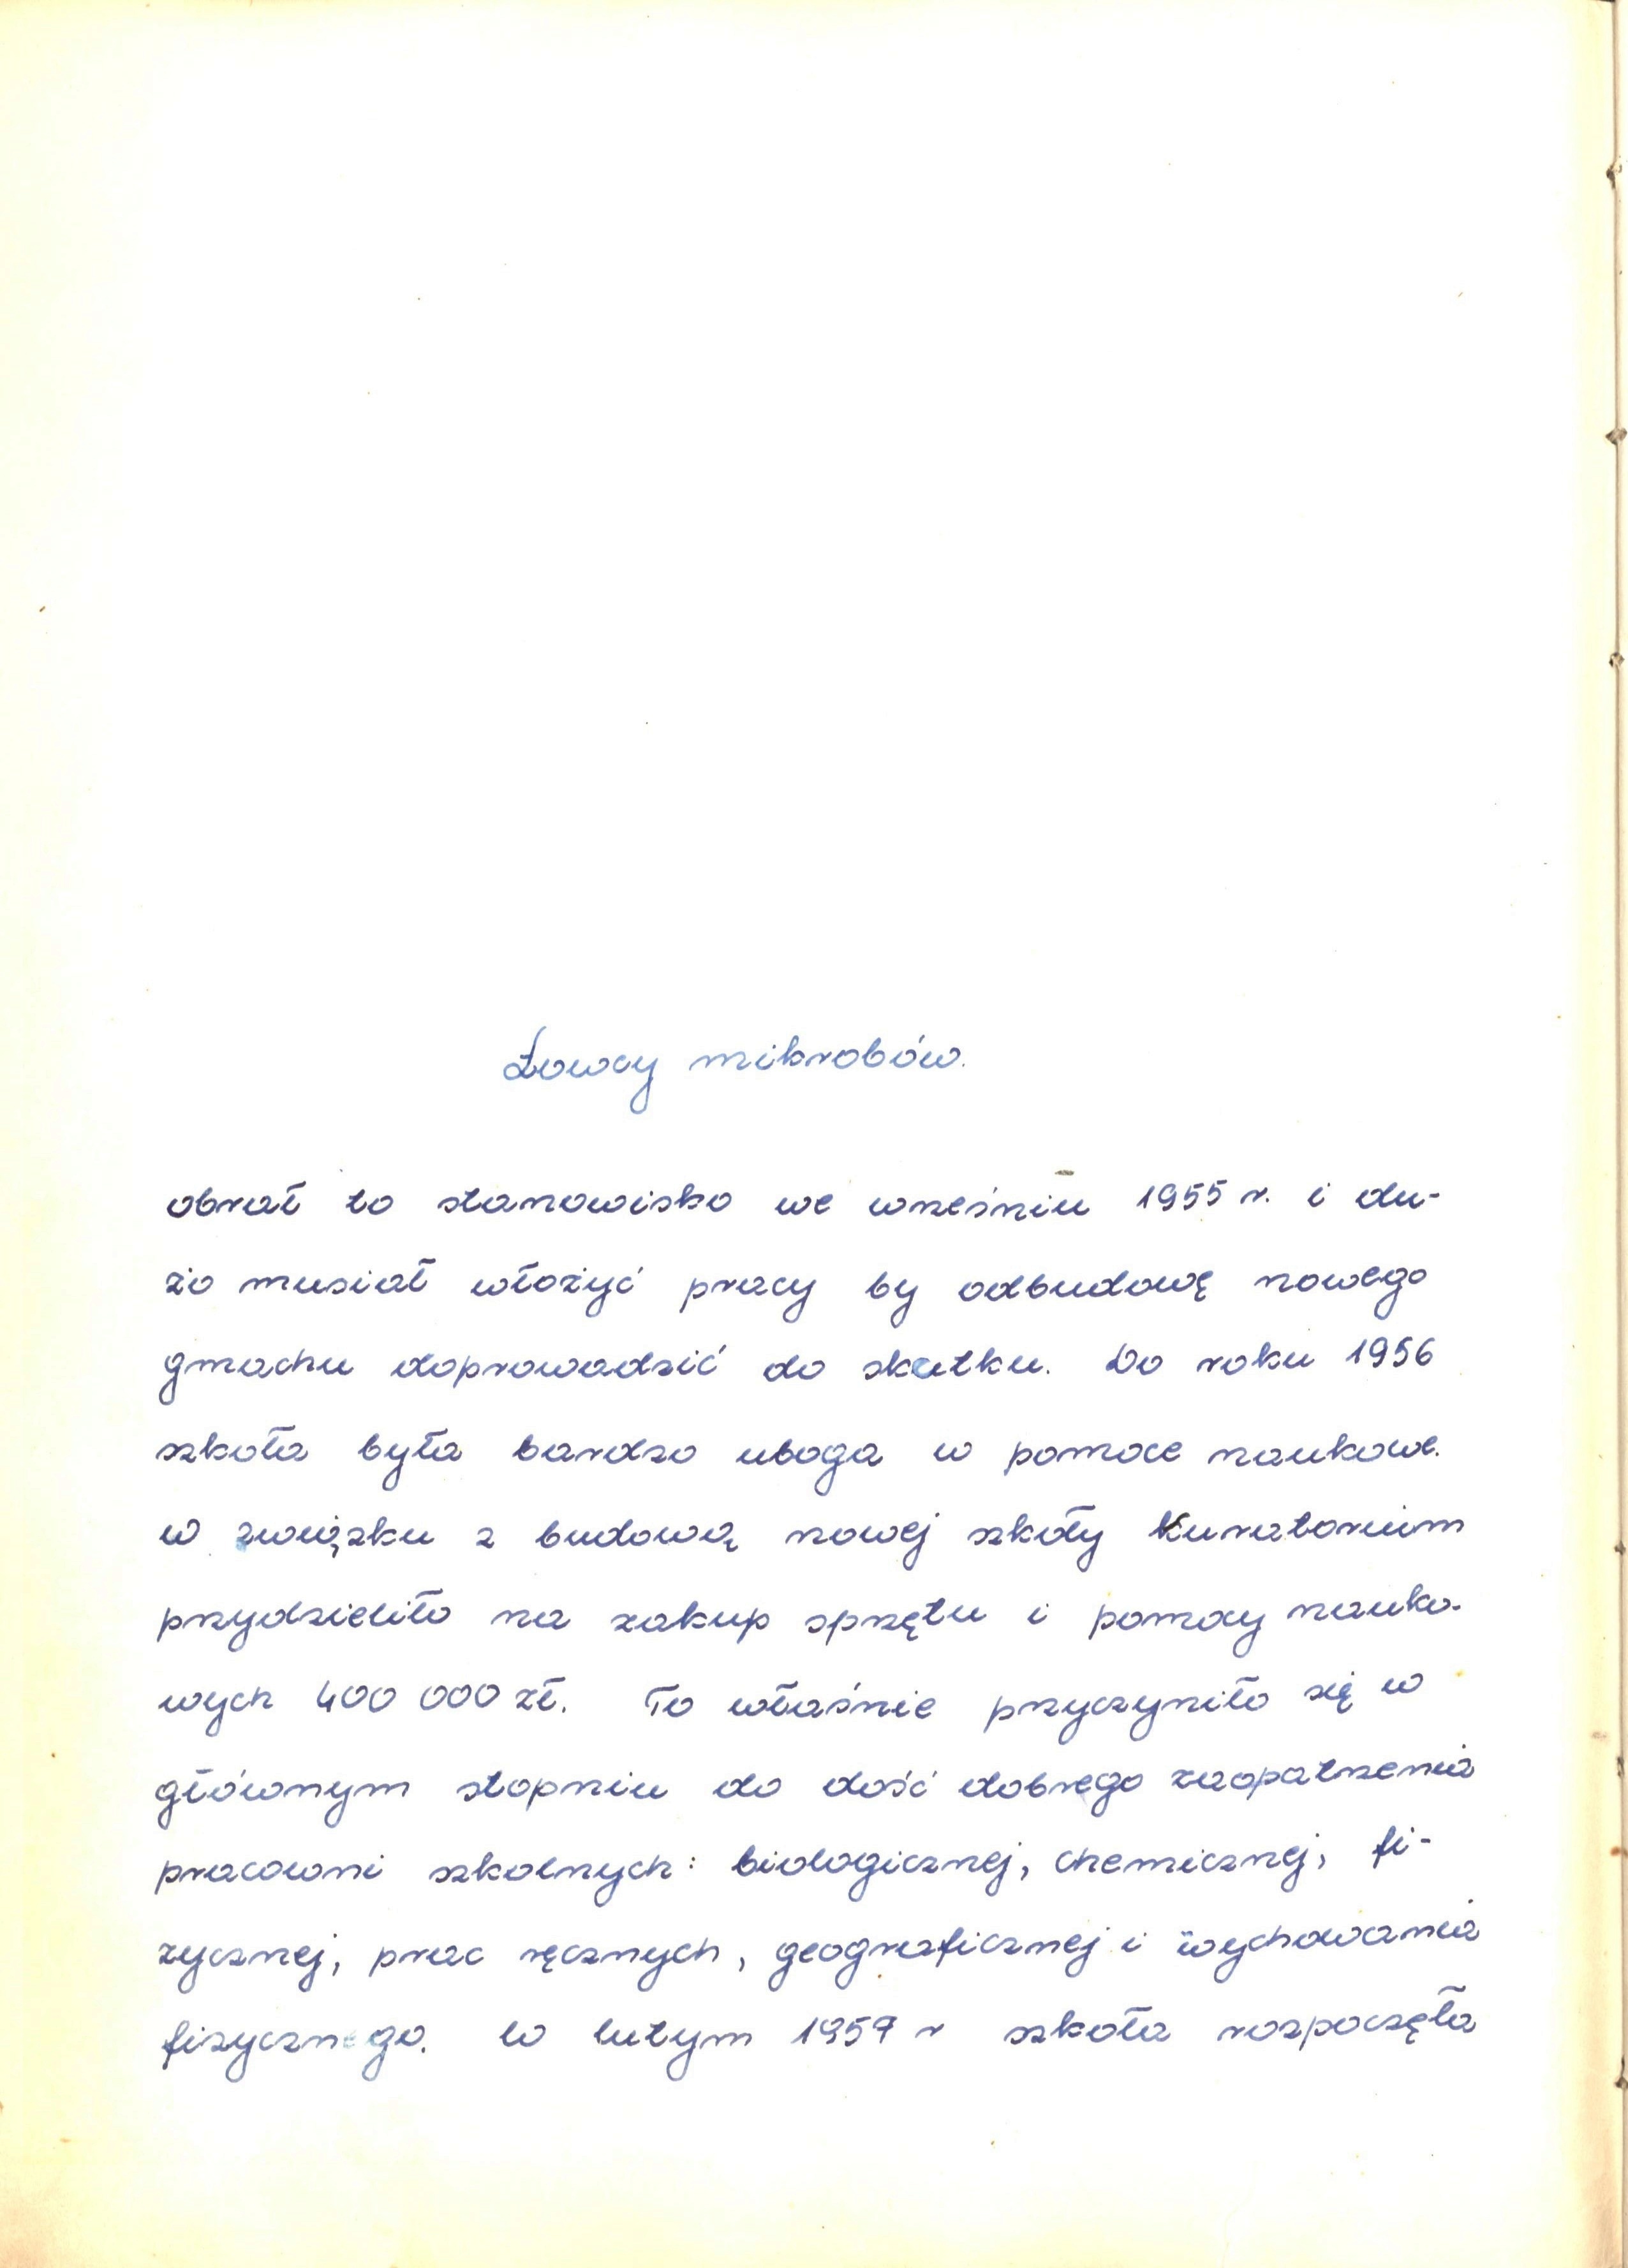 Łowcy mikrobów.
obrał to stanowisko we wrześniu 1955 r. i du-
żo musiał włożyć pracy by odbudowę nowego
gmachu doprowadzić do skutku. Do roku 1956
szkoła była bardzo uboga w pomoce naukowe.
W związku z budową nowej szkoły Kuratorium
przydzieliło na zakup sprzętu i pomocy nauko-
wych 400 000 zł. To właśnie przyczyniło się w
głównym stopniu do dość dobrego zaopatrzenia
pracowni szkolnych: biologicznej, chemicznej, fi-
zycznej, prac ręcznych, geograficznej i wychowania
fizycznego. W lutym 1959 r szkoła rozpoczęła